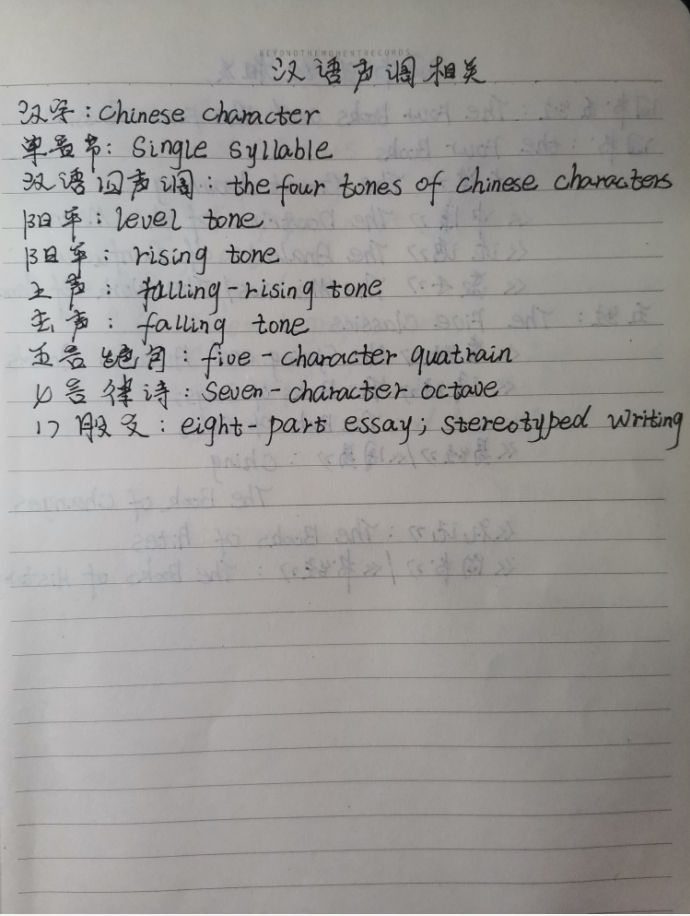 BEYONDTHEMOMENTRECORDS
汉语声调相关
汉字：Chinese character
单音节：Single syllable
汉语四声调：the four tones of Chinese characters
阳平：level tone
阳平：rising tone
上声：falling-rising tone
去声：falling tone
五言绝句：five-character quatrain
七言律诗：Seven-character octave
八股文：eight-part essay; stereotyped writing